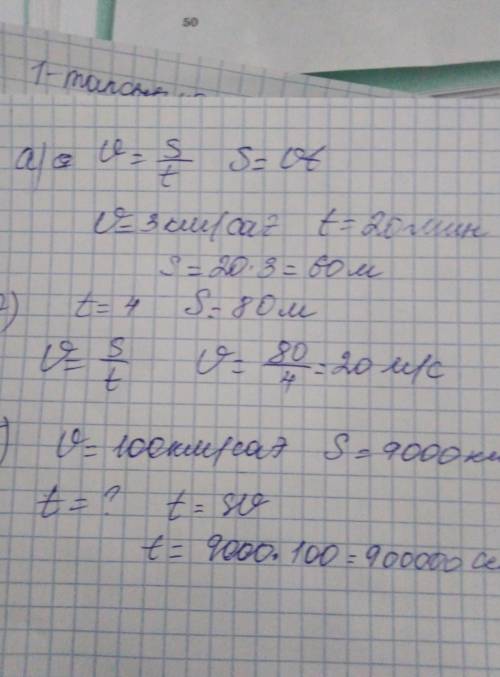 50
1-тапсы
а) v = s/t   s = vt
v = 3 км/сағ   t = 20 мин
s = 20·3 = 60 м
2)   t = 4   s = 80 м
v = s/t   v = 80/4 = 20 м/с
)   v = 100 км/сағ   s = 9000 км
t = ?   t = sv
t = 9000·100 = 900000 се